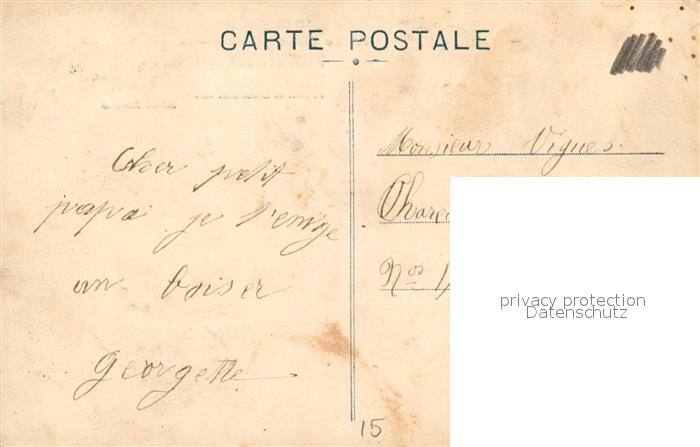 CARTE POSTALE
Cher petit
papa je t'envoie
un baiser
georgette
Monsieur Vigues
Nos
privacy protection
Datenschutz
15